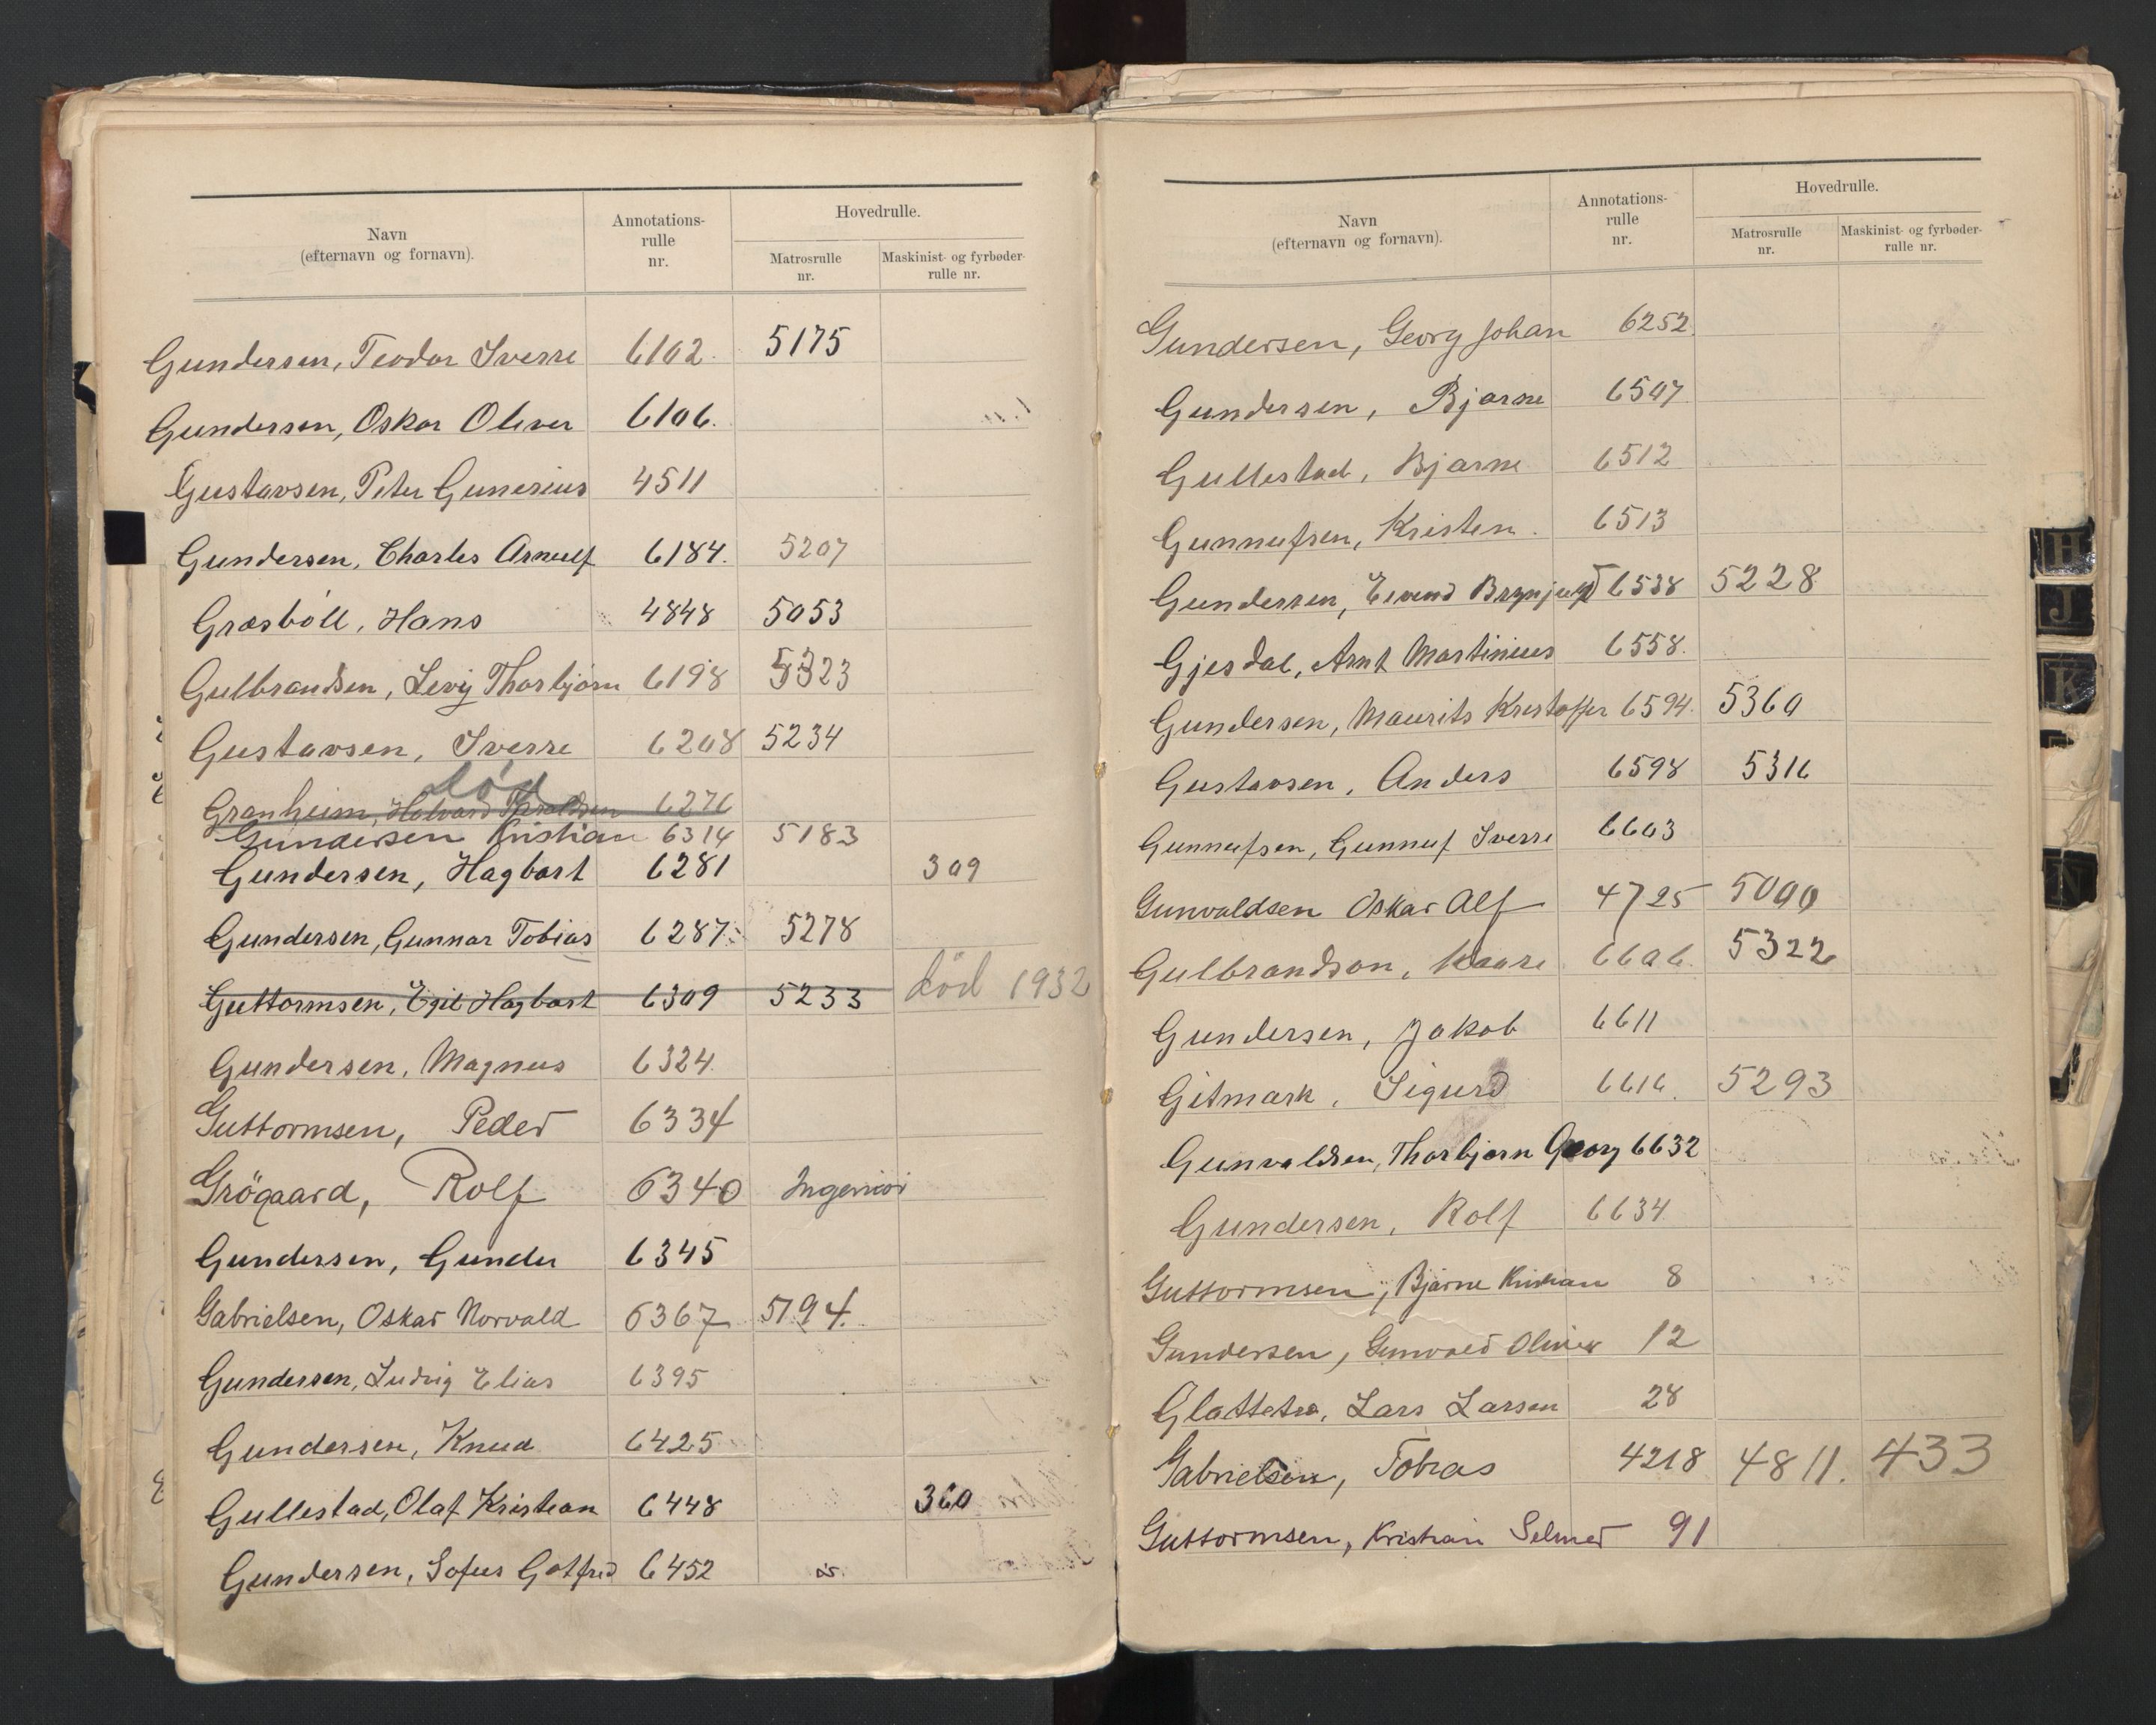 Navn
(efternavn og fornavn).
Annotations-
rulle
nr.
Hovedrulle.
Matrosrulle
nr.
Maskinist- og fyrbøder-
rulle nr.
Gundersen, Teodor Sverre 6102. 5175
Gundersen, Oskar Oliver 6106.
Gustavsen, Peter Gunerius 4511
Gundersen, Charles Arnulf 6184. 5207
Græsböll, Hans 4848 5053
Gulbrandsen, Levy Thorbjørn 6198 5323
Gustavsen, Sverre 6208 5234
død
Granheim, Halvard 6276
Gundersen Kristian 6314 5183
Gundersen, Hagbart 6281 309
Gundersen, Gunnar Tobias 6287 5278
Guttormsen, Egil Hagbart 6309 5233 død 1932
Gundersen, Magnus 6324.
Guttormsen, Peder 6334
Grögaard, Rolf 6340 Ingeniør
Gundersen, Gunder 6345
Gabrielsen, Oskar Norvald 6367 5194.
Gundersen, Ludvig Elias 6395
Gundersen, Knud 6425
Gullestad, Olaf Kristian 6448 360
Gundersen, Sofus Gotfred 6452
Navn
(efternavn og fornavn).
Annotations-
rulle
nr.
Hovedrulle.
Matrosrulle
nr.
Maskinist- og fyrbøder-
rulle nr.
Gundersen, Georg Johan 6252
Gundersen, Bjarne 6507
Gullestad, Bjarne 6512
Gunnufsen, Kristen. 6513
Gundersen, Eivind Brynjulf 6538 5228
Gjesdal, Arnt Martinius 6558.
Gundersen, Maurits Kristoffer 6594. 5360
Gustavsen, Anders 6598 5316
Gunnufsen, Gunnuf Sverre 6603
Gunvaldsen Oskar Alf 4725 5000
Gulbrandson, Kaare 6606 5322
Gundersen, Jakob 6611
Gitmark, Sigurd 6616. 5293
Gunvaldsen, Thorbjørn Georg 6632
Gundersen, Rolf 6634
Guttormsen, Bjarne Kristian 8
Gundersen, Gunvald Oliver 12
Glattetre, Lars Larsen 28
Gabrielsen, Tobias 4218 4811. 433
Guttormsen, Kristian Selmer 91
H
J
K
N